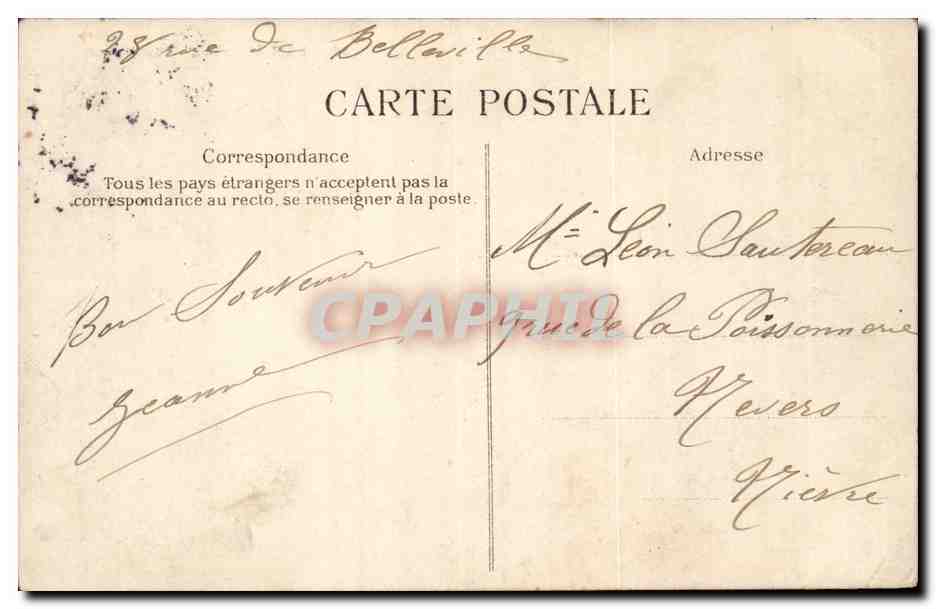 28 rue de Belleville
CARTE POSTALE
Correspondance
Tous les pays étrangers n'acceptent pas la
correspondance au recto, se renseigner à la poste.
Bon Souvenir
Jeanne
Adresse
Mr Léon Sautereau
9 rue de la Poissonnerie
Nevers
Nièvre
CPAPHIL